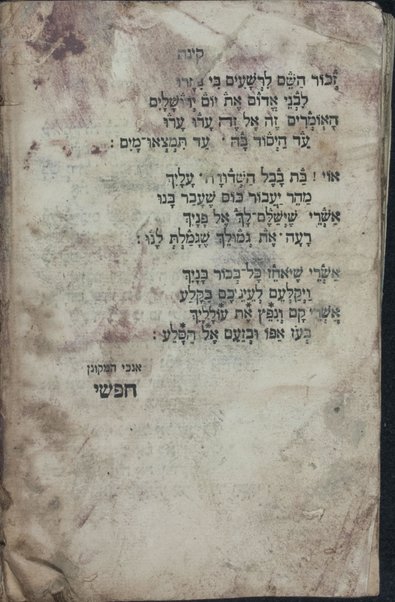 קינה
זְכוֹר הַשֵּׁם לִרְשָׁעִים כִּי
לִבְנֵי אֱדוֹם אֶת יוֹם יְרוּשָׁלַיִם
הָאוֹמְרִים זֶה אֶל זֶה עָרוּ עָרוּ
עַד הַיְסוֹד בָּהּ עַד תִּמְצְאוּ־מָיִם :
אוֹי ! בַּת בָּבֶל הַשְּׁדוּדָה עָלָיִךְ
מַהֵר יַעֲבוֹר כּוֹס שֶׁעָבַר בָּנוּ
אַשְׁרֵי שֶׁיְשַׁלֶּם־לָךְ אֶל פָּנַיִךְ
רָעָה־אֶת גְּמוּלֵךְ שֶׁגָּמַלְתְּ לָנוּ :
אַשְׁרֵי שֶׁיֹּאחֵז כָּל־בְּכוֹר בָּנַיִךְ
וִיקַלְּעֵם לְעֵינֵיכֶם בַּקֶּלַע
אַשְׁרֵי קָם וְנִפֵּץ אֶת עוֹלָלַיִךְ
בְּעֹז אַפּוֹ וּבְזַעַם אֶל הַסָּלַע :
אנכי המקונן
חפשי